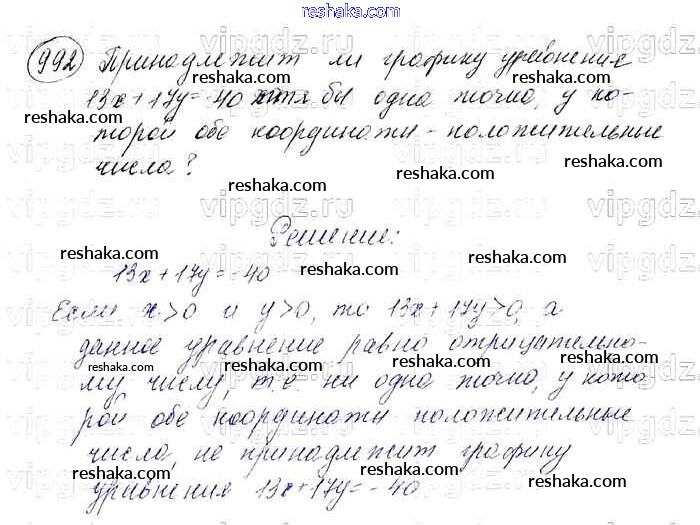 reshaka.com
992 Принадлежит ли графику уравнения
reshaka.com reshaka.com
13x+17y=-40 хотя бы одна точка, у ко-
reshaka.com
торой обе координаты - положительные
числа? reshaka.com
reshaka.com
Решение:
reshaka.com reshaka.com
13x+17y=-40 reshaka.com
Если x>0 и y>0, то 13x+17y>0, а
reshaka.com
данное уравнение равно отрицательно-
reshaka.com reshaka.com
му числу, т.е. ни одна точка, у кото
reshaka.com
рой обе координаты положительные
reshaka.com
числа, не принадлежит графику
reshaka.com reshaka.com
уравнения 13x+17y=-40
vipgdz.ru